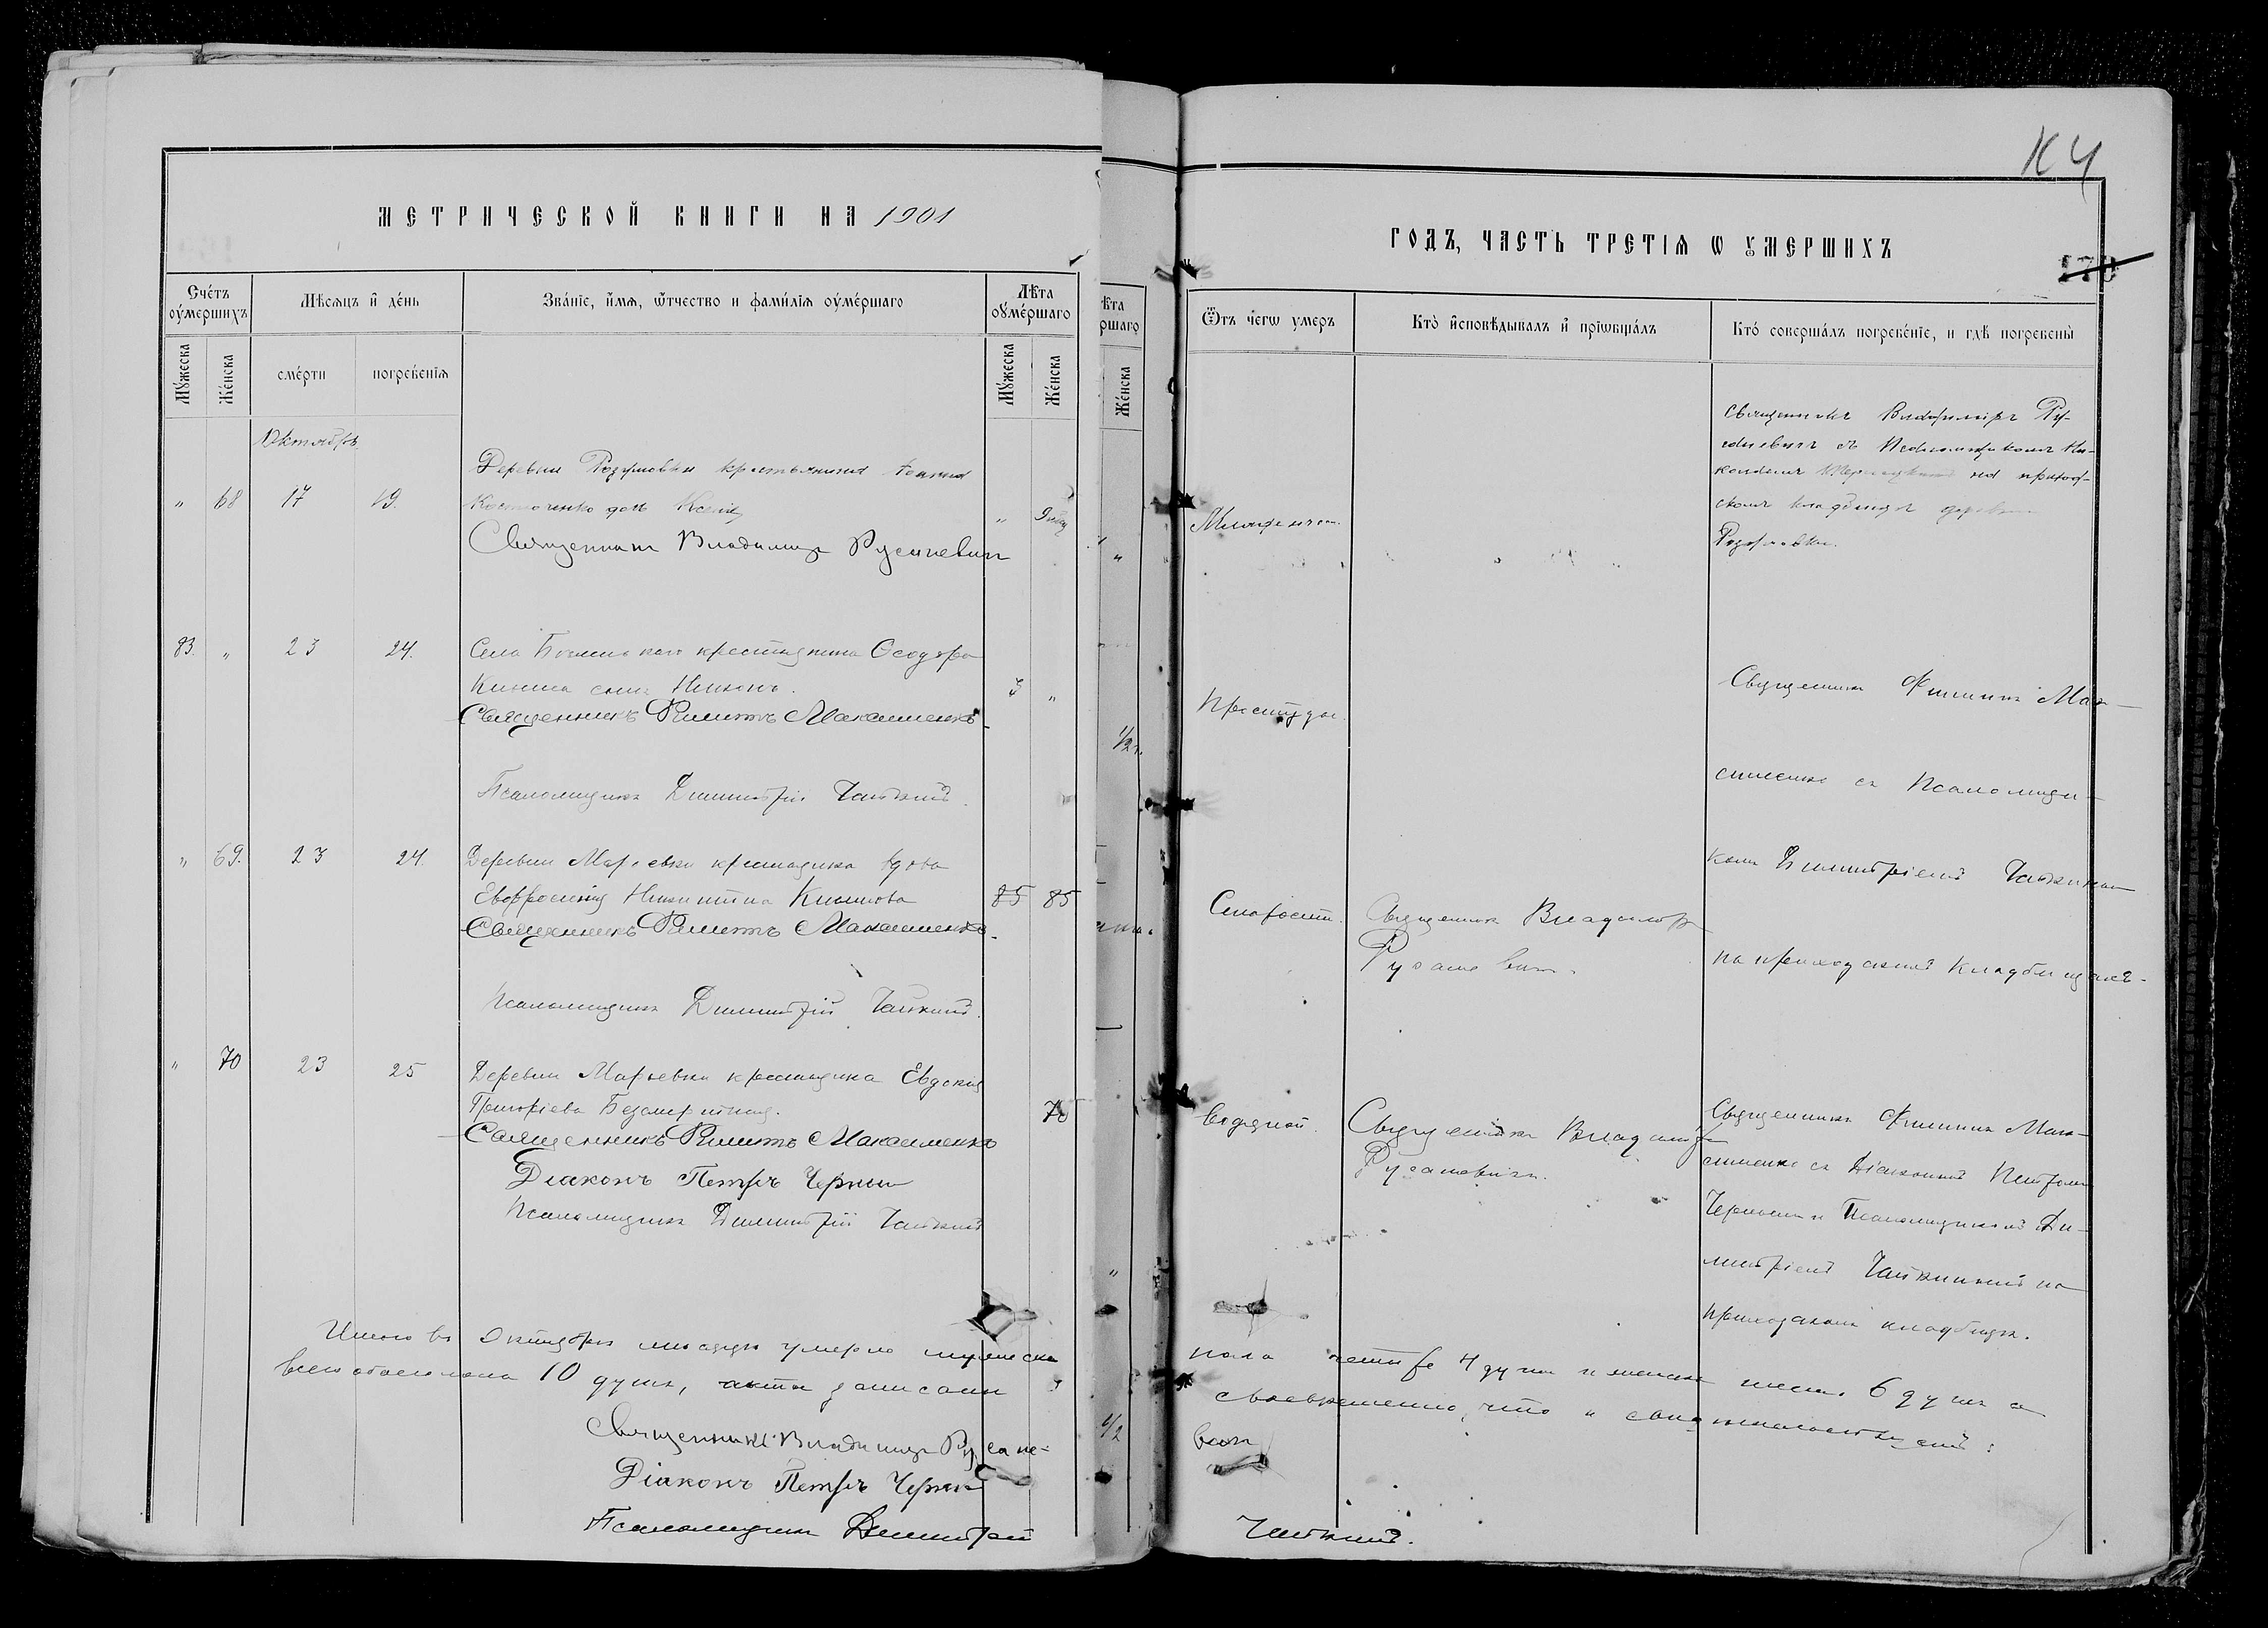 К Ч
МЕТРИЧЕСКОЙ КНИГИ НА 1901
ГОДЪ, ЧАСТЬ ТРЕТІѦ Ѡ ꙊМЕРШИХЪ
170
Сче́тъ оу҆ме́ршихъ
Мѣ́сѧцъ и҆ де́нь
Зва́нїе, и҆́мѧ, ѿтчество и фами́лїѧ оу҆ме́ршаго
Лѣ́та оу҆ме́ршаго
Мꙋ́жеска
Же́нска
сме́рти
погребе́нїѧ
Мꙋ́жеска
Же́нска
ѣта
ршаго
Же́нска
Ѿтъ чегѡ умеръ
Кто̀ и҆сповѣ́дывалъ и҆ прїѡбща́лъ
Кто́ соверша́лъ погребе́нїе, и гдѣ̀ погребены̀
Октябрь
" 68 17 19.
Деревни Разумовки крестьянина
дочь Ксенія
"
Священникъ Владимиръ Русаневичъ
Младенческ.
Священникъ Владимиръ Ру-
саневичъ съ Псаломщикомъ Ни-
на приход-
скомъ кладбищѣ деревни
Разумовки.
83. " 23 24.
Села крестьянина Ѳеодора
сынъ Никонъ.
3 "
Священникъ Филиппъ Максименко
Псаломщикъ Димитрій Чайкинъ
Простуды.
Священникъ Филиппъ Мак-
сименко съ Псаломщи-
комъ Димитріемъ Чайкинымъ
на приходскомъ кладбищѣ.
" 69. 23 24.
Деревни Марьевки крестьянка вдова
Евфросинія Никитина
85 85
Священникъ Филиппъ Максименко
Псаломщикъ Димитрій Чайкинъ.
Старости.
Священникъ Владимиръ
Русаневичъ.
" 70 23 25
Деревни Марьевки крестьянка Евдокія
Григоріева
70
Священникъ Филиппъ Максименко
Діаконъ Петръ Черный
Псаломщикъ Димитрій Чайкинъ
Водяной.
Священникъ Владимиръ
Русаневичъ.
Священникъ Филиппъ Мак-
сименко съ Діакономъ Петромъ
Чернымъ и Псаломщикомъ Ди-
митріемъ Чайкинымъ на
приходскомъ кладбищѣ.
1/2
Итого въ Октябрѣ мѣсяцѣ умерло мужеска
пола четыре 4 души и женска шесть 6 душъ а
всего обоего пола 10 душъ, акты записаны
своевременно, что и свидѣтельствуемъ:
Священникъ Владимиръ Русане-
вичъ
Діаконъ Петръ Черный
Псаломщикъ Димитрій
Чайкинъ.